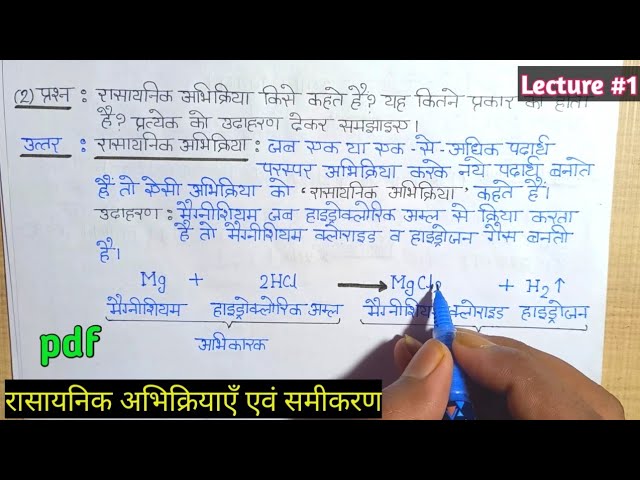 Lecture #1
(2) प्रश्न : रासायनिक अभिक्रिया किसे कहते हैं? यह कितने प्रकार का होता
है? प्रत्येक को उदाहरण देकर समझाइए।
उत्तर : रासायनिक अभिक्रिया : जब एक या एक-से-अधिक पदार्थ
परस्पर अभिक्रिया करके नये पदार्थ बनाते
हैं तो ऐसी अभिक्रिया को 'रासायनिक अभिक्रिया' कहते हैं।
उदाहरण : मैग्नीशियम जब हाइड्रोक्लोरिक अम्ल से क्रिया करता
है तो मैग्नीशियम क्लोराइड व हाइड्रोजन गैस बनती
है।
Mg + 2HCl ⟶ MgCl2 + H2↑
मैग्नीशियम हाइड्रोक्लोरिक अम्ल मैग्नीशियम क्लोराइड हाइड्रोजन
अभिकारक
pdf
रासायनिक अभिक्रियाएँ एवं समीकरण